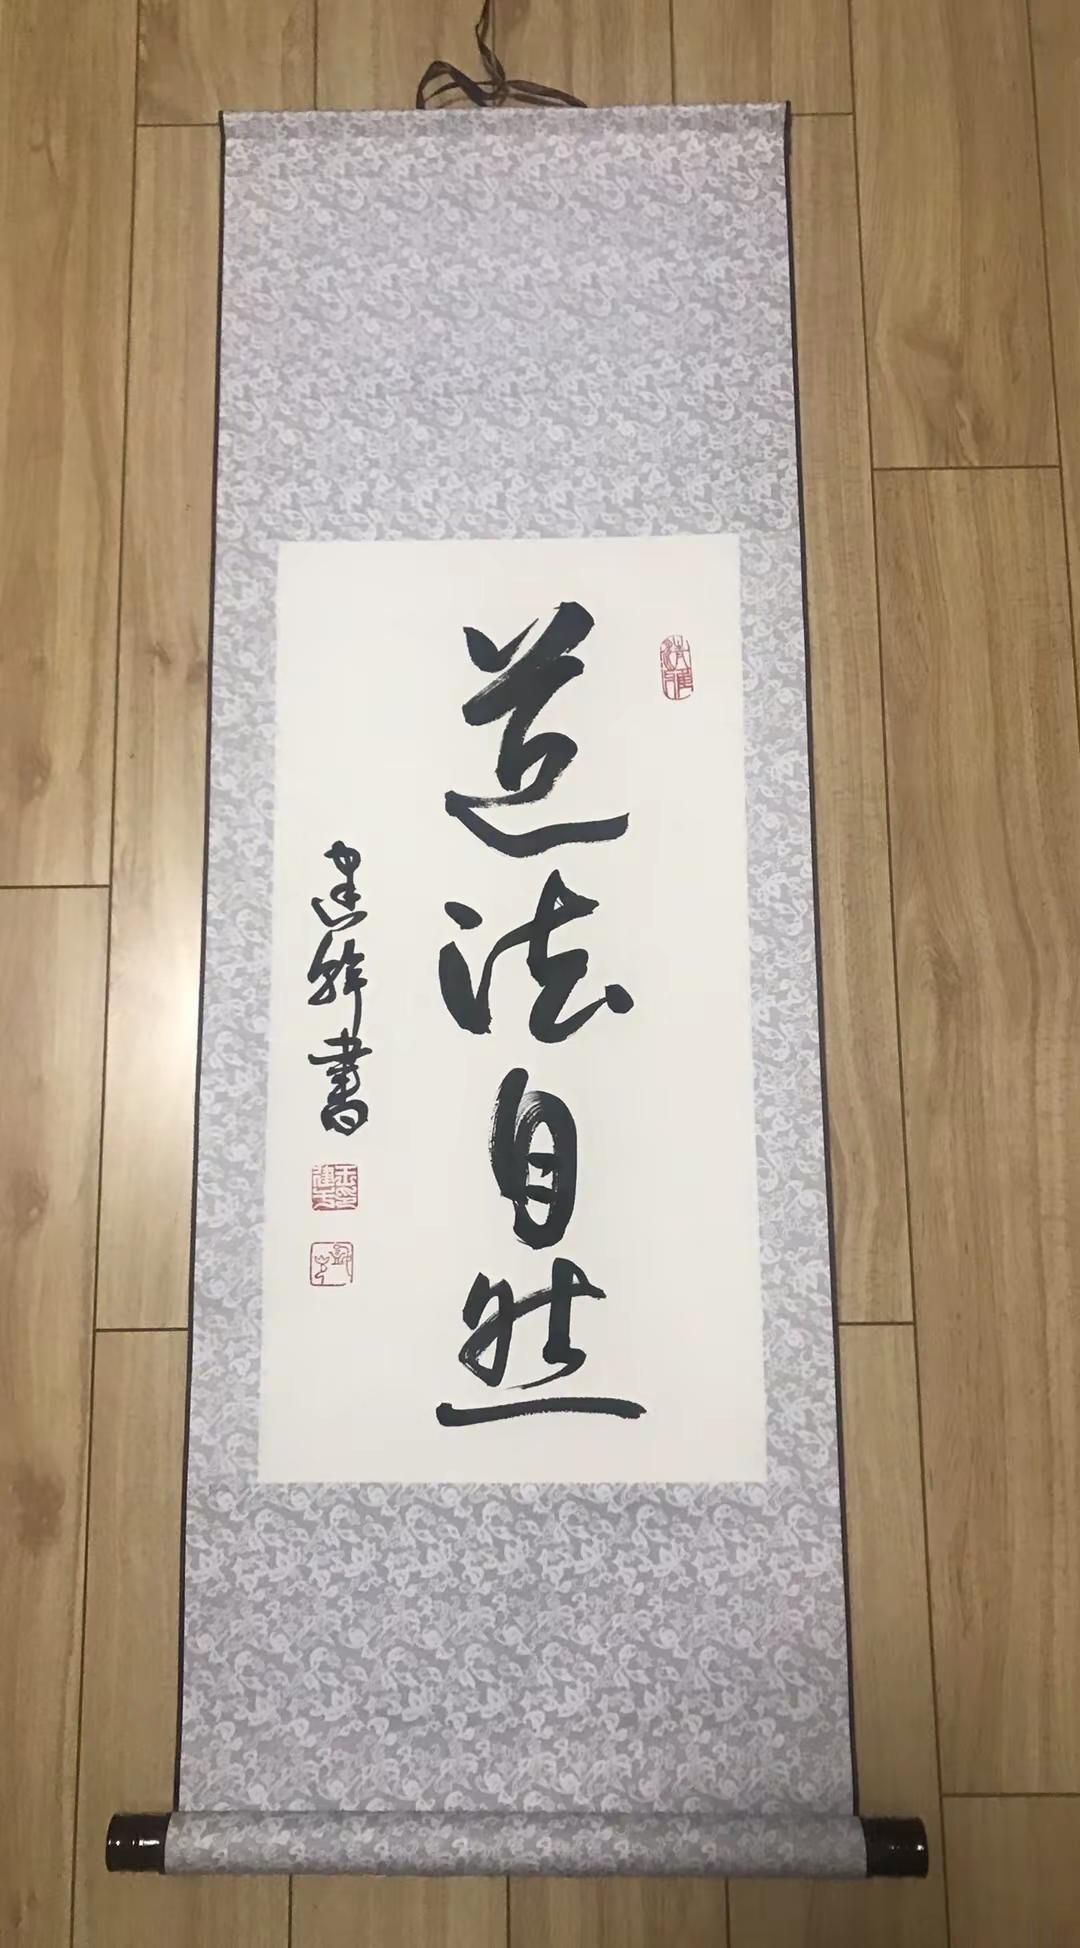 道法自然
建华書